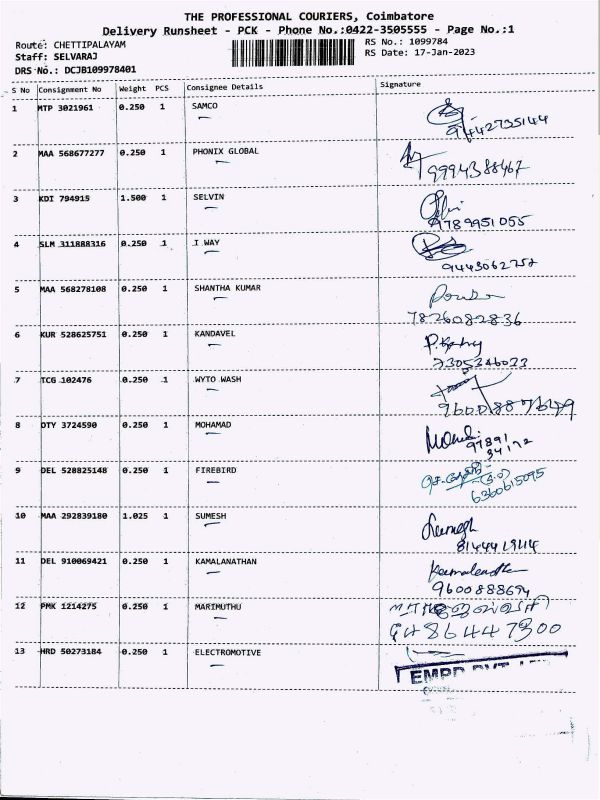 THE PROFESSIONAL COURIERS, Coimbatore
Delivery Runsheet - PCK - Phone No.:0422-3505555 - Page No.:1
Route: CHETTIPALAYAM
RS No.: 1099784
Staff: SELVARAJ
RS Date: 17-Jan-2023
DRS No.: DCJB109978401
S No Consignment No Weight PCS Consignee Details Signature
1 MTP 3021961 0.250 1 SAMCO
9442735144
2 MAA 568677277 0.250 1 PHONIX GLOBAL
9994388467
3 KDI 794915 1.500 1 SELVIN
9789951055
4 SLM 311888316 0.250 1 I WAY
9443062752
5 MAA 568278108 0.250 1 SHANTHA KUMAR
7826082836
6 KUR 528625751 0.250 1 KANDAVEL
7 TCG 102476 0.250 1 WYTO WASH
8 OTY 3724590 0.250 1 MOHAMAD
97891
34172
9 DEL 528825148 0.250 1 FIREBIRD
6360615095
10 MAA 292839180 1.025 1 SUMESH
11 DEL 910069421 0.250 1 KAMALANATHAN
9600888694
12 PMK 1214275 0.250 1 MARIMUTHU
86447300
13 HRD 50273184 0.250 1 ELECTROMOTIVE